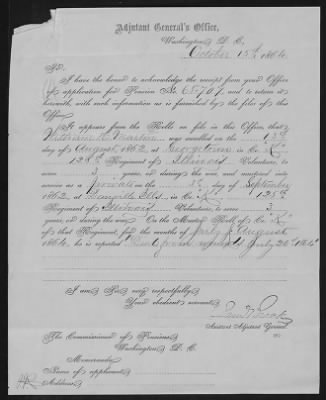 Adjutant General's Office,
Washington, D. C.
October 15th, 1864.
Sir:
I have the honor to acknowledge the receipt from your Office
of application for Pension No. 65707, and to return it
herewith, with such information as is furnished by the files of this
Office.
It appears from the Rolls on file in this Office, that
was enrolled on the 13th
day of August, 1862, at Georgetown in Co. "K"
125th Regiment of Illinois Volunteers, to
serve 3 years, or during the war, and mustered into
service as a Private on the 3rd day of September
1862, at Danville Ills, in Co. "K" 125th
Regiment of Illinois Volunteers, to serve 3
years, or during the war. On the Muster Roll of Co. "K"
of that Regiment, for the months of July & August
1864, he is reported July 20th 1864
I am, Sir, very respectfully,
Your obedient servant,
Assistant Adjutant General.
The Commissioner of Pensions,
Washington, D. C.
Memoranda:
Name of applicant,
Address,